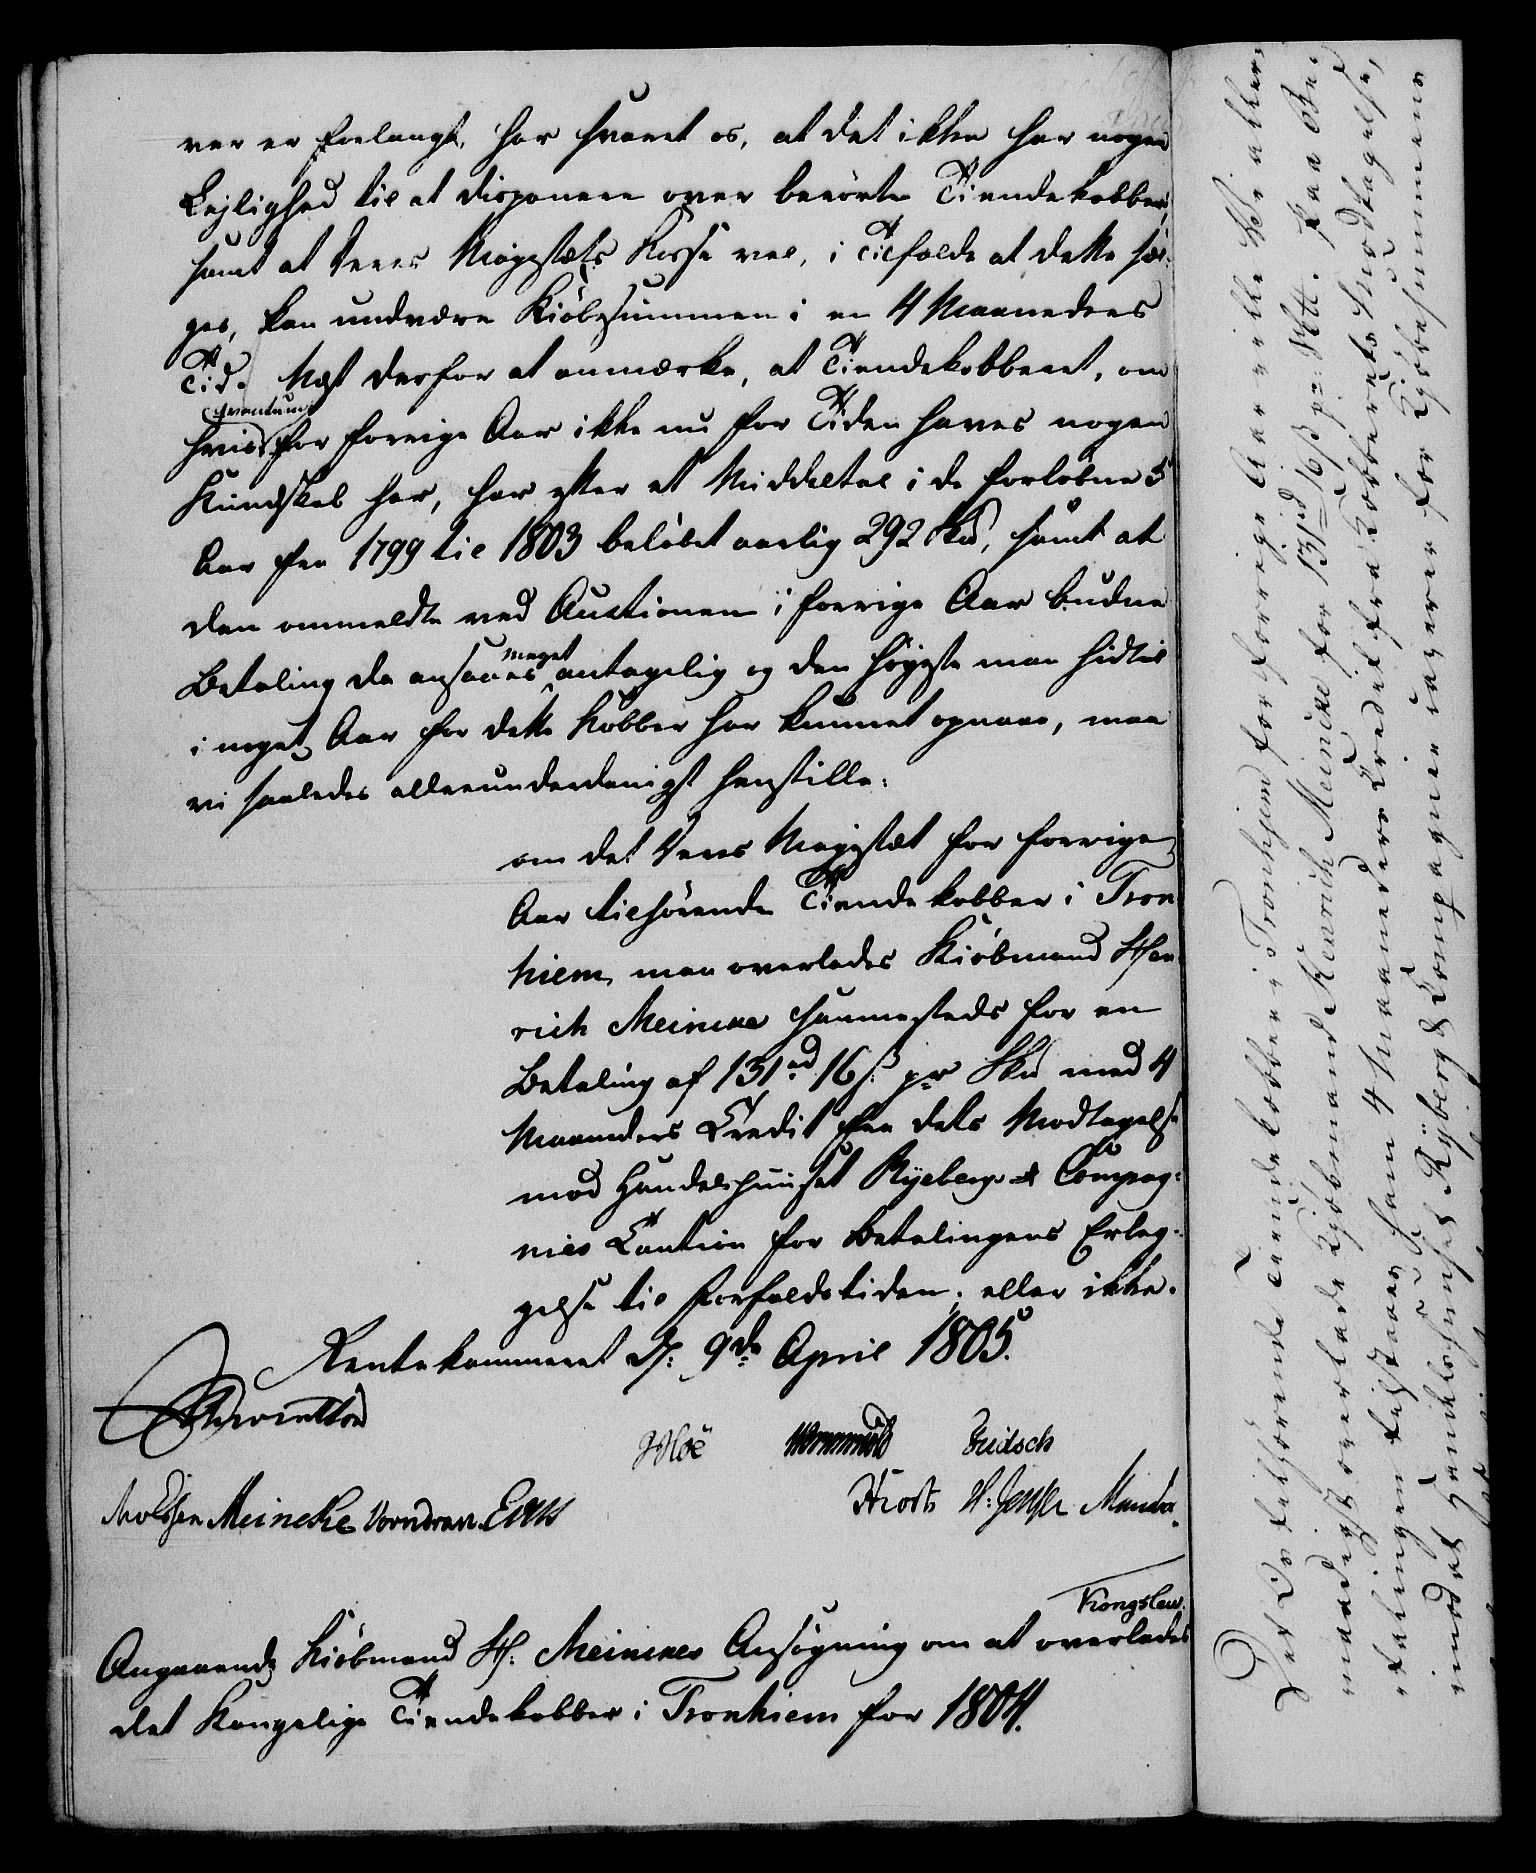 ver er forlangt, har svaret os, at det ikke har nogen
Lejlighed til at disponere over berörte Tiendekobber,
samt at Deres Majestæts Kasse vel, i Tilfælde at dette sæl-
ges, kan undvære Kiöbesummen i en 4 Maaneders
Tid. Næst derfor at anmærke, at Tiendekobberet, om
hvis Qvantum for forrige Aar ikke nu for Tiden haves nogen
Kundskab her, har efter et Middeltal i de forløbne 5
Aar fra 1799 til 1803 beløbet aarlig 292 Skd, samt at
den ommeldte ved Auctionen i forrige Aar budne
Betaling da ansaaes meget antagelig og den høyeste man hidtil
i noget Aar for dette Kobber har kunnet opnaae, maa
vi saaledes allerunderdanigst henstille:
om det Deres Majestæt for forrige
Aar tilhörende Tiendekobber i Tron
hiem maa overlades Kiöbmand Hen
rich Meincke sammesteds for en
Betaling af 131 rd 16 s. pr Skd med 4
Maaneders Credit fra dets Modtagelse
mod Handelshuuset Ryeberg & Compag-
nies Caution for Betalingens Erlæg-
gelse til Forfaldstiden; eller ikke.
Rentekammeret d. 9de April 1805.
Reventlow
Moe Wormskiold Fritsch
Meincke Vorndran
Hiort H: Jensen
Kongslew.
Angaaende Kiöbmand H. Meinckes Ansögning om at overlades
det Kongelige Tiendekobber i Tronhiem for 1804.
Det Os tilhörende Tiendekobber i Tronhjem for forrige Aar ville Vi aller-
naadigst overlade Kjöbmand Henrich Meincke for 131 rd 16 ß pr: Skd. Paa Be-
talingen tilstaaes ham 4 Maaneders Credit fra Kobberets Modtagelse,
imod at Handelshuuset Ryberg & Compagnie caverer for Kjöbesummens